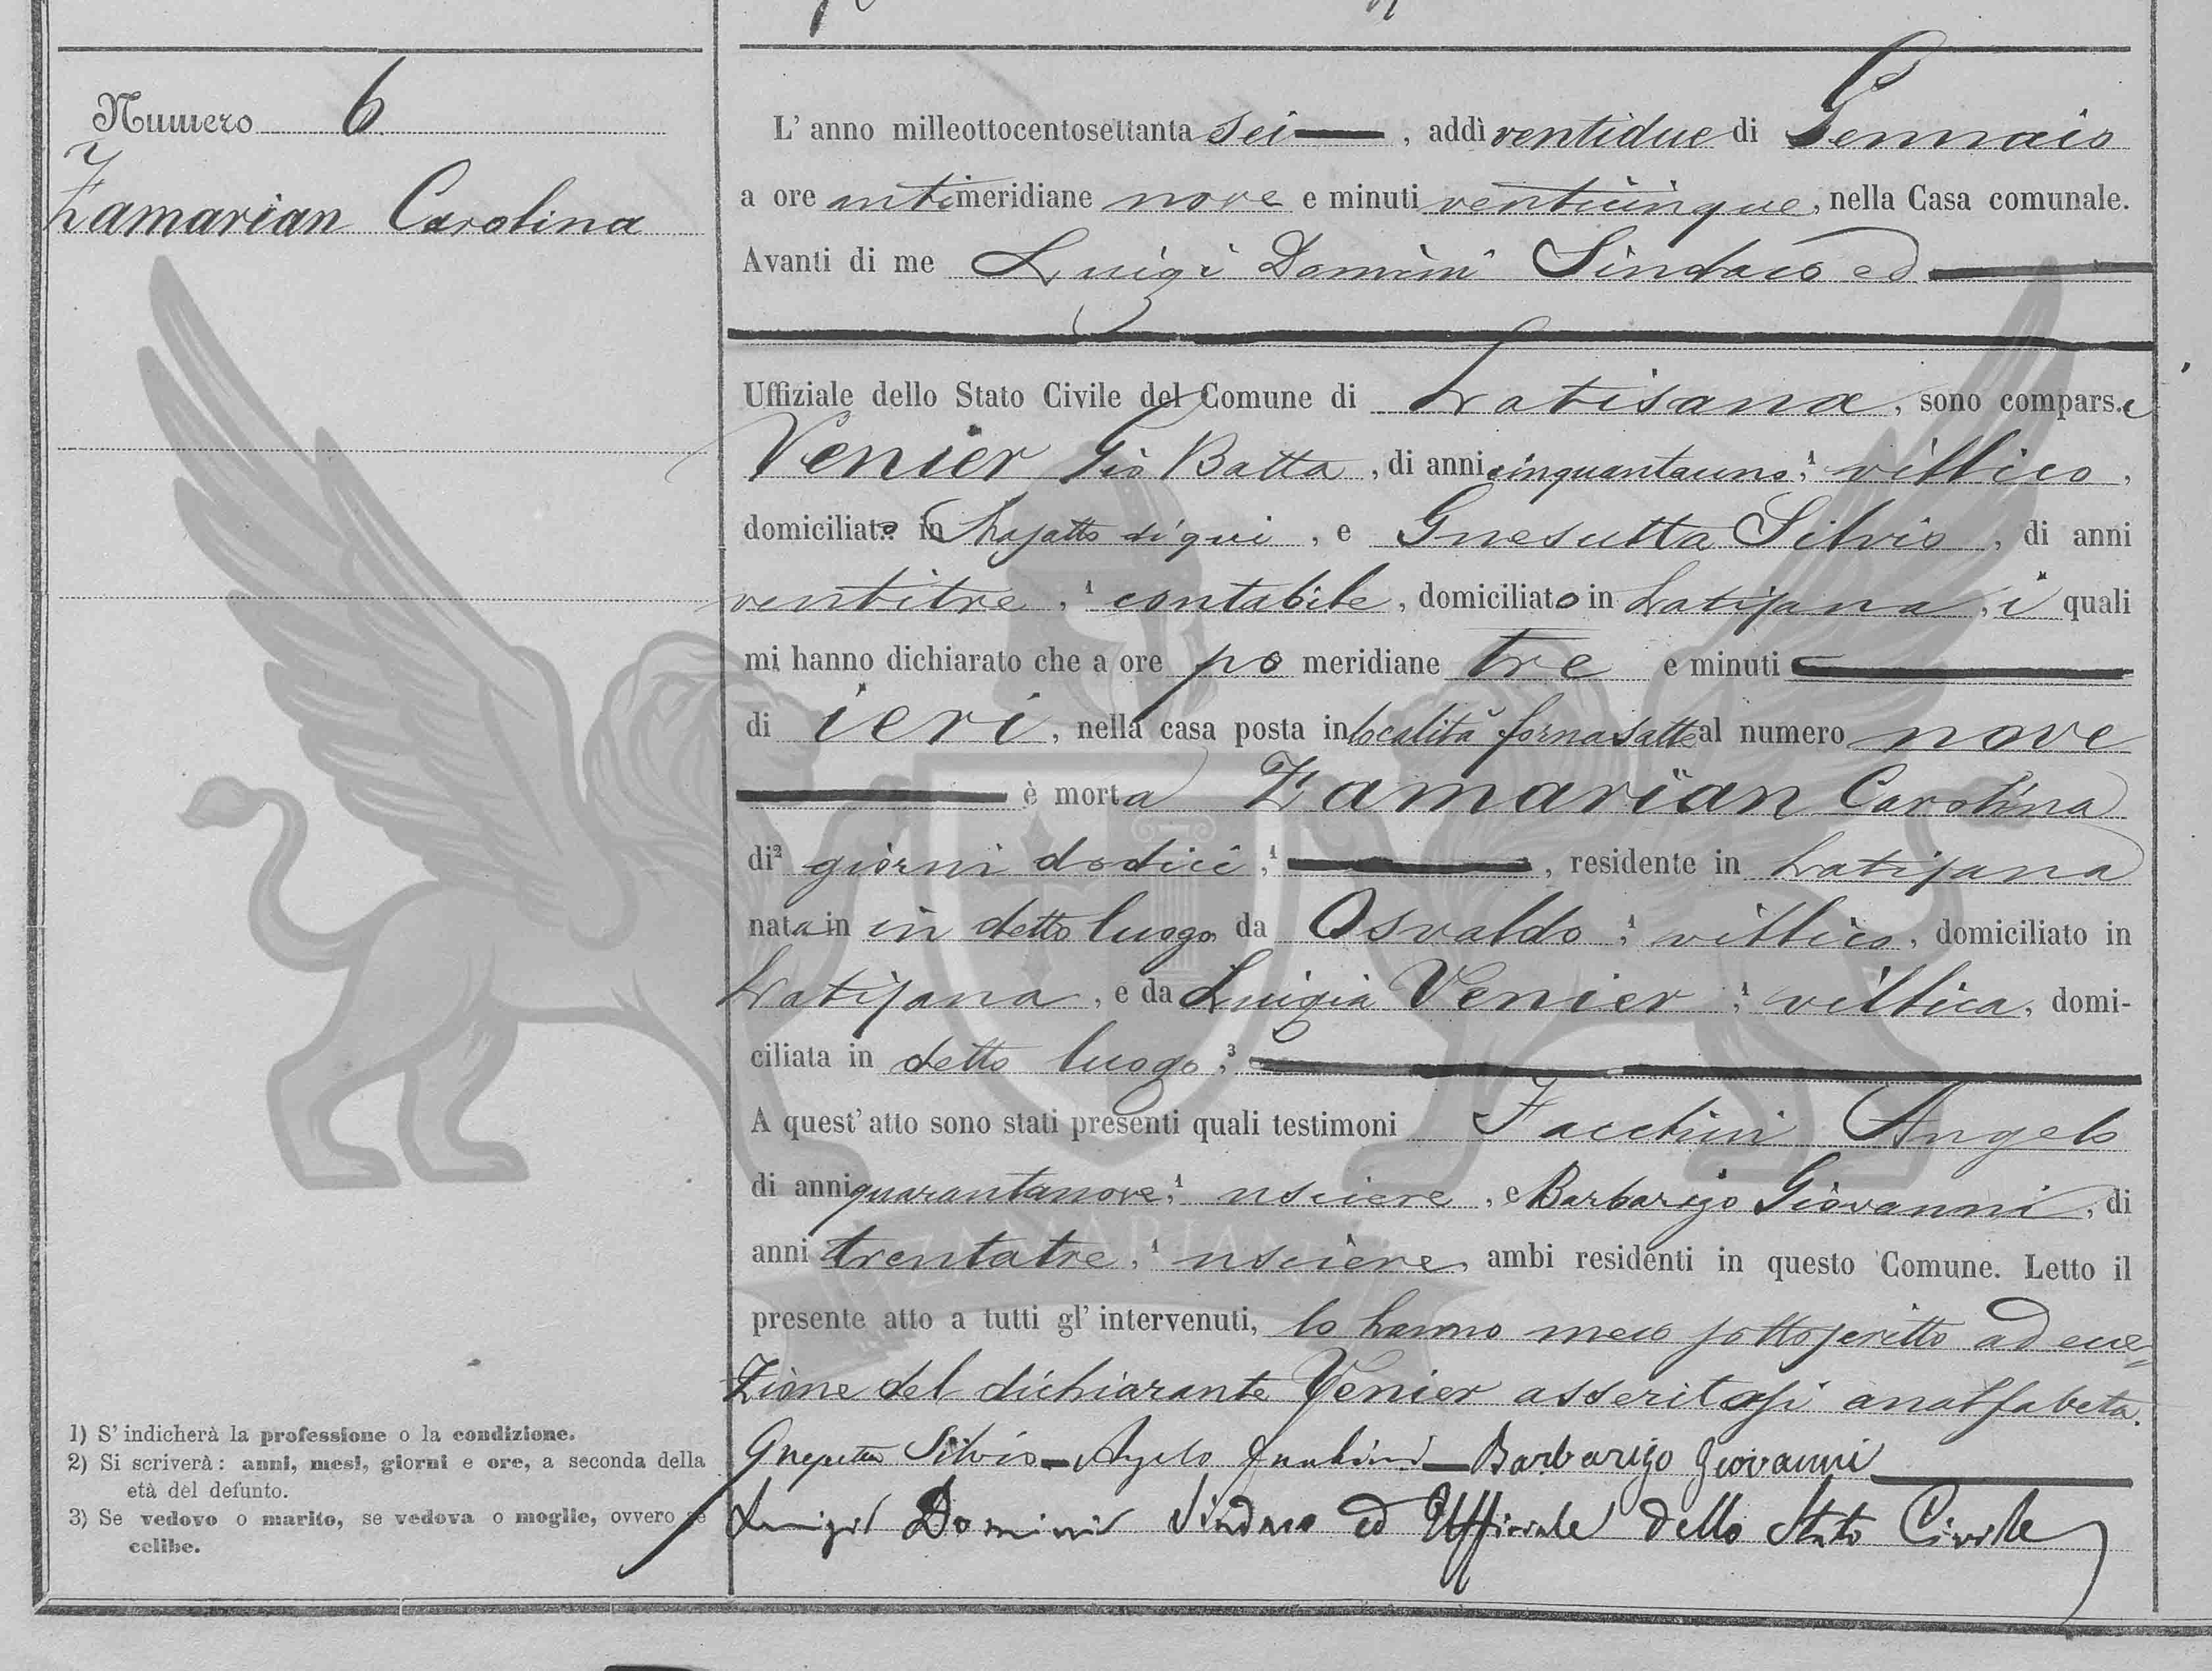 Numero 6
Zamarian Carolina
L' anno milleottocentosettanta sei, addì ventidue di Gennaio
a ore antimeridiane nove e minuti venticinque, nella Casa comunale.
Avanti di me Luigi Domini Sindaco ed
Uffiziale dello Stato Civile del Comune di Latisana, sono comparsi
Venier Gio Batta, di anni cinquantauno, ¹ villico,
domiciliato in di qui, e Gnesutta Silvio, di anni
ventitre, ¹ contabile, domiciliato in Latisana, i quali
mi hanno dichiarato che a ore po meridiane tre e minuti
di ieri, nella casa posta in località fornasatte al numero nove
è morta Zamarian Carolina
di² giorni dodici, ¹ , residente in Latisana
nata in in detto luogo da Osvaldo, ¹ villico, domiciliato in
Latisana, e da Luigia Venier, ¹ villica, domi-
ciliata in detto luogo, ³
A quest' atto sono stati presenti quali testimoni Facchini Angelo
di anni quarantanove, ¹ usciere, e Barbarigo Giovanni, di
anni trentatre, ¹ usciere, ambi residenti in questo Comune. Letto il
presente atto a tutti gl' intervenuti, lo hanno meco sottoscritto ad ecce=
zione del dichiarante Venier asseritosi analfabeta.
Gnesutta Silvio - Angelo Facchini - Barbarigo Giovanni
Luigi Domini Sindaco ed Ufficiale dello Stato Civile
1) S' indicherà la professione o la condizione.
2) Si scriverà: anni, mesi, giorni e ore, a seconda della
età del defunto.
3) Se vedovo o marito, se vedova o moglie, ovvero se
celibe.